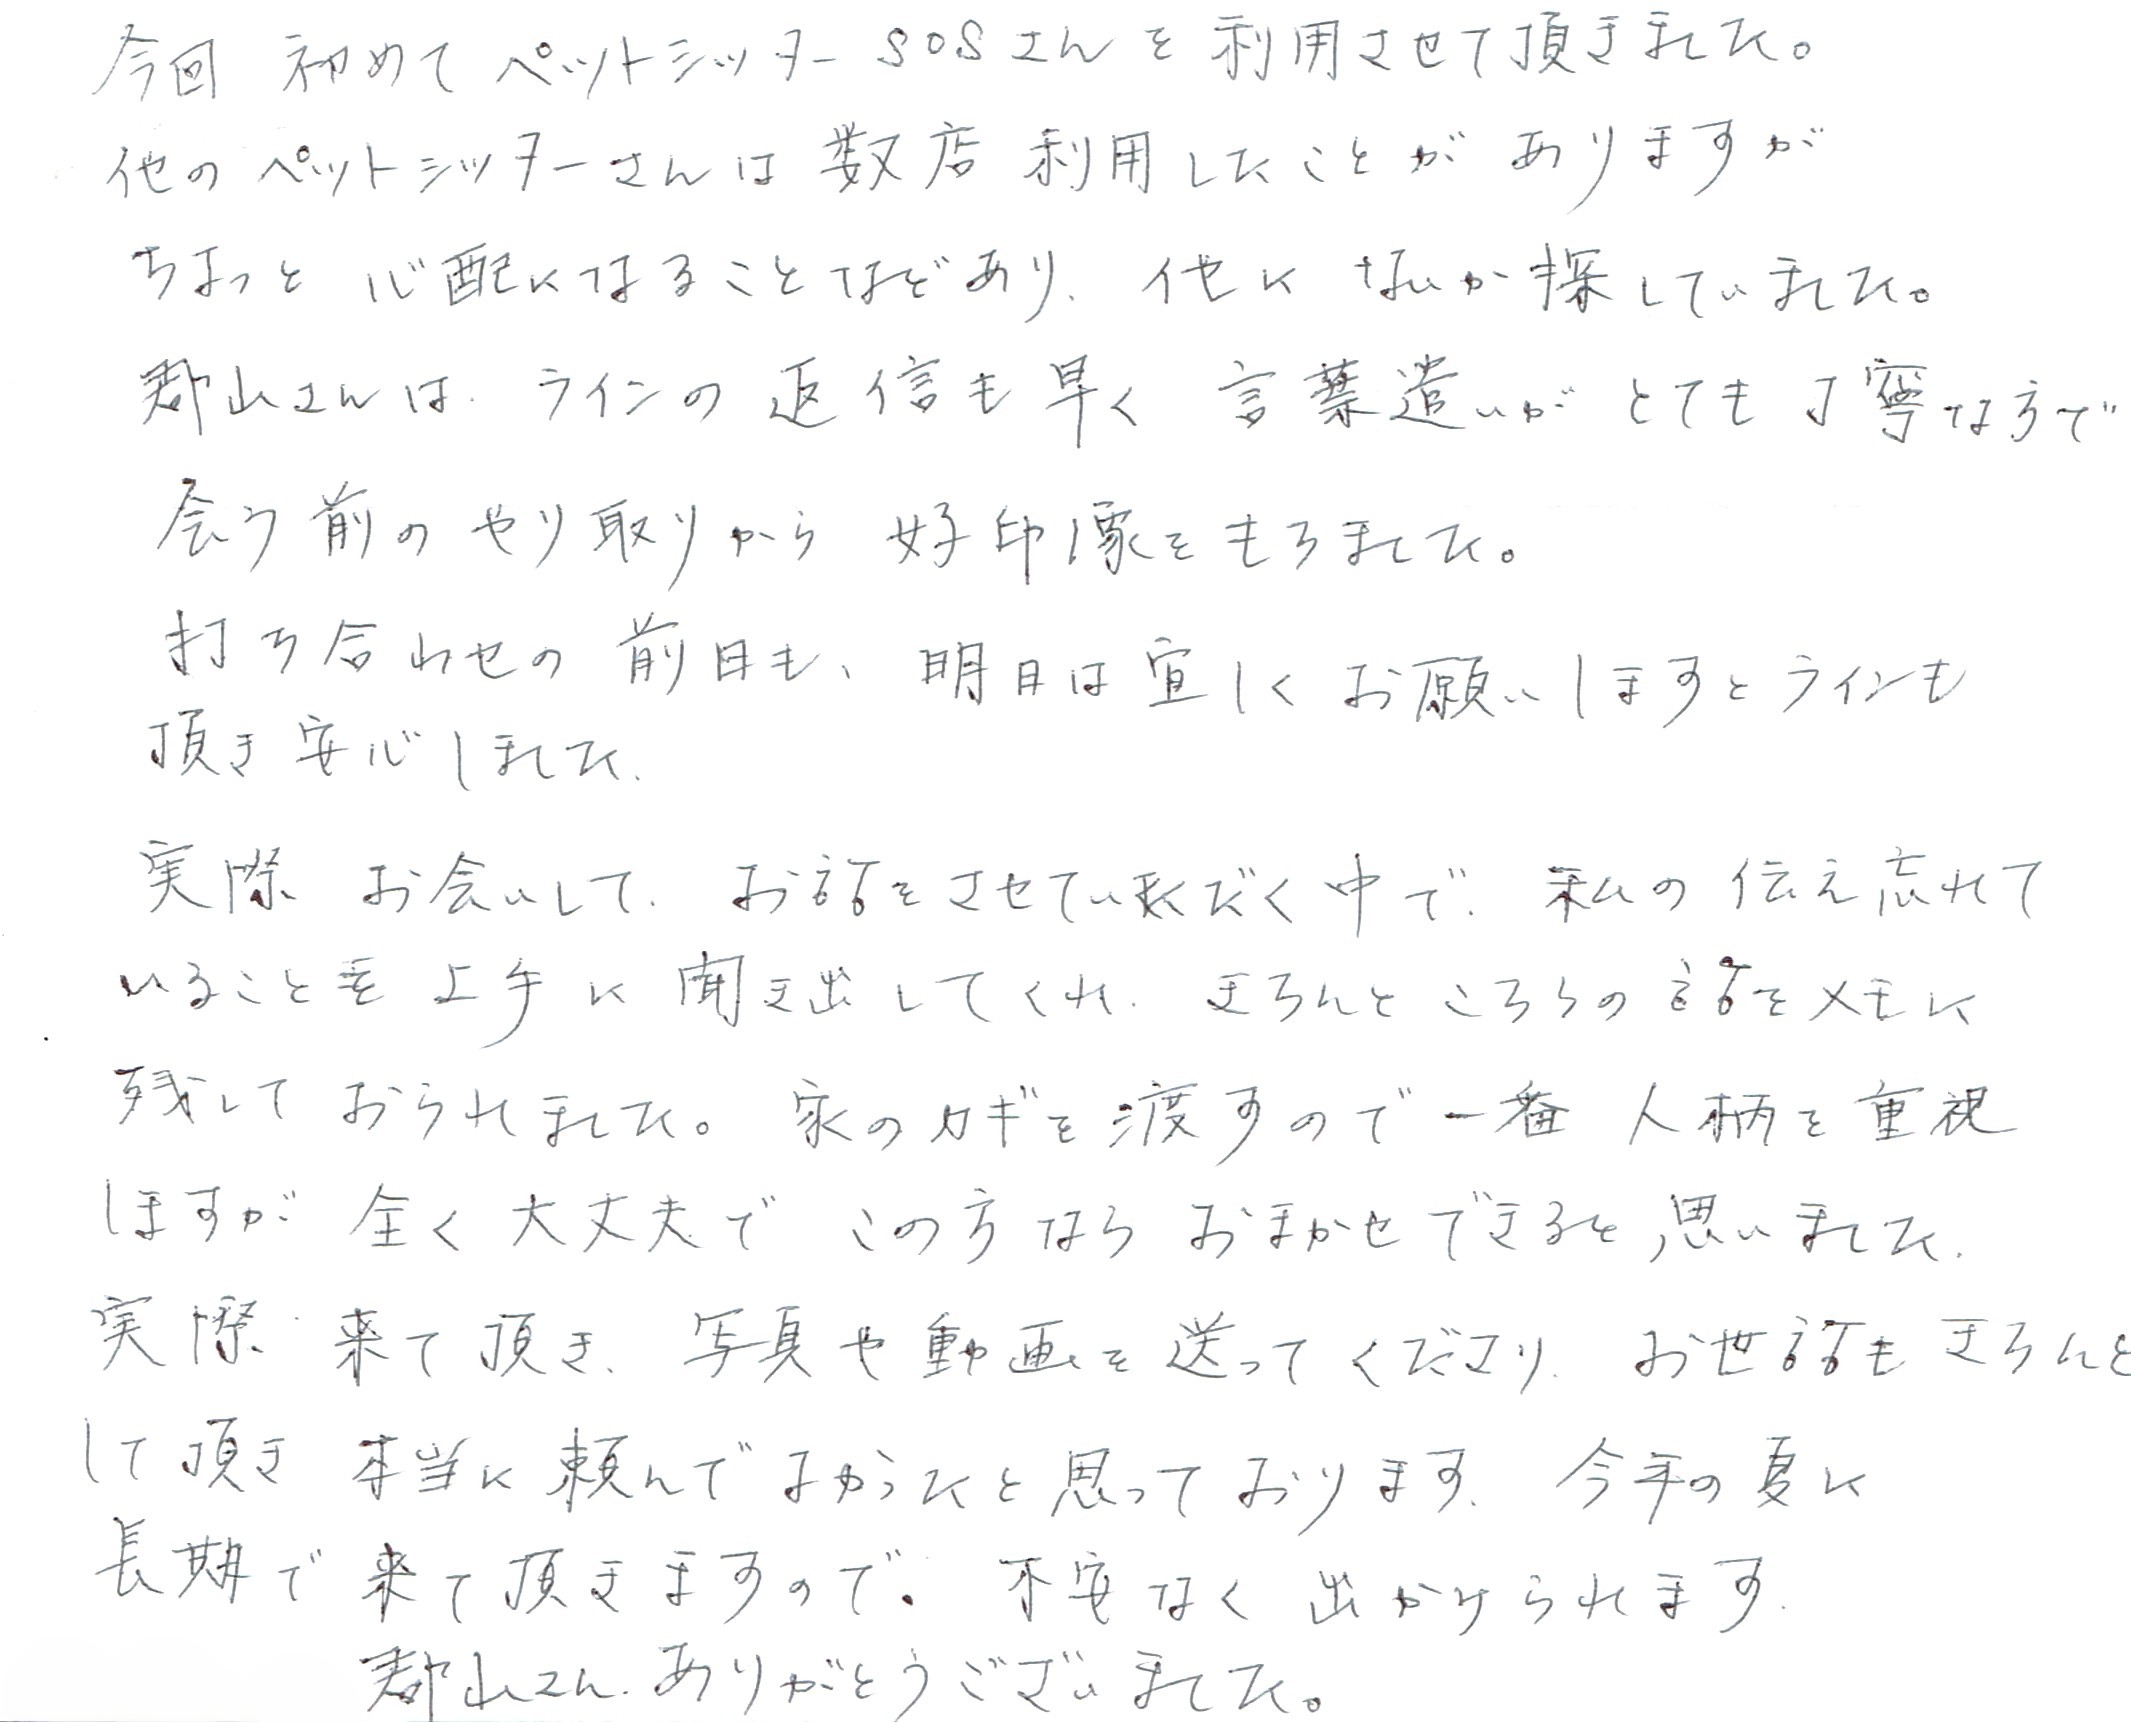 今回 初めて ペットシッターSOSさんを利用させて頂きました。
他の ペットシッターさんは 数店 利用したことが ありますが
ちょっと 心配になることなどあり、他に ないか探していました。
郡山さんは、ラインの 返信も早く 言葉遣いが とても丁寧な方で
会う前の やり取りから 好印象をもちました。
打ち合わせの 前日も、明日は宜しく お願いしますとラインも
頂き安心しました。
実際、お会いして、お話をさせていただく中で、私の伝え忘れて
いることを 上手に 聞き出してくれ、きちんと こちらの話をメモに
残して おられました。家のカギを渡すので一番 人柄を重視
しますが 全く大丈夫で この方なら おまかせできると思いました。
実際、来て頂き、写真や動画を送ってくださり、お世話もきちんと
して頂き 本当に頼んでよかったと思っております。今年の夏に
長期で 来て頂きますので、不安なく 出かけられます。
郡山さん、ありがとうございました。